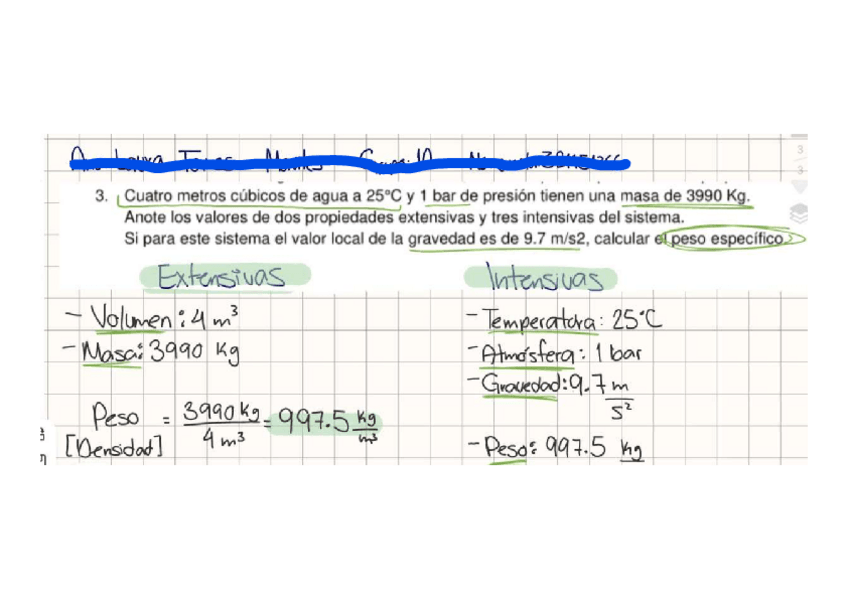 3. Cuatro metros cúbicos de agua a 25°C y 1 bar de presión tienen una masa de 3990 Kg.
Anote los valores de dos propiedades extensivas y tres intensivas del sistema.
Si para este sistema el valor local de la gravedad es de 9.7 m/s2, calcular el peso específico.
Extensivas
- Volumen: 4 m³
- Masa: 3990 Kg
Peso = 3990 Kg / 4 m³ = 997.5 kg/m³
[Densidad]
Intensivas
- Temperatura: 25°C
- Atmósfera: 1 bar
- Gravedad: 9.7 m/s²
- Peso: 997.5 kg